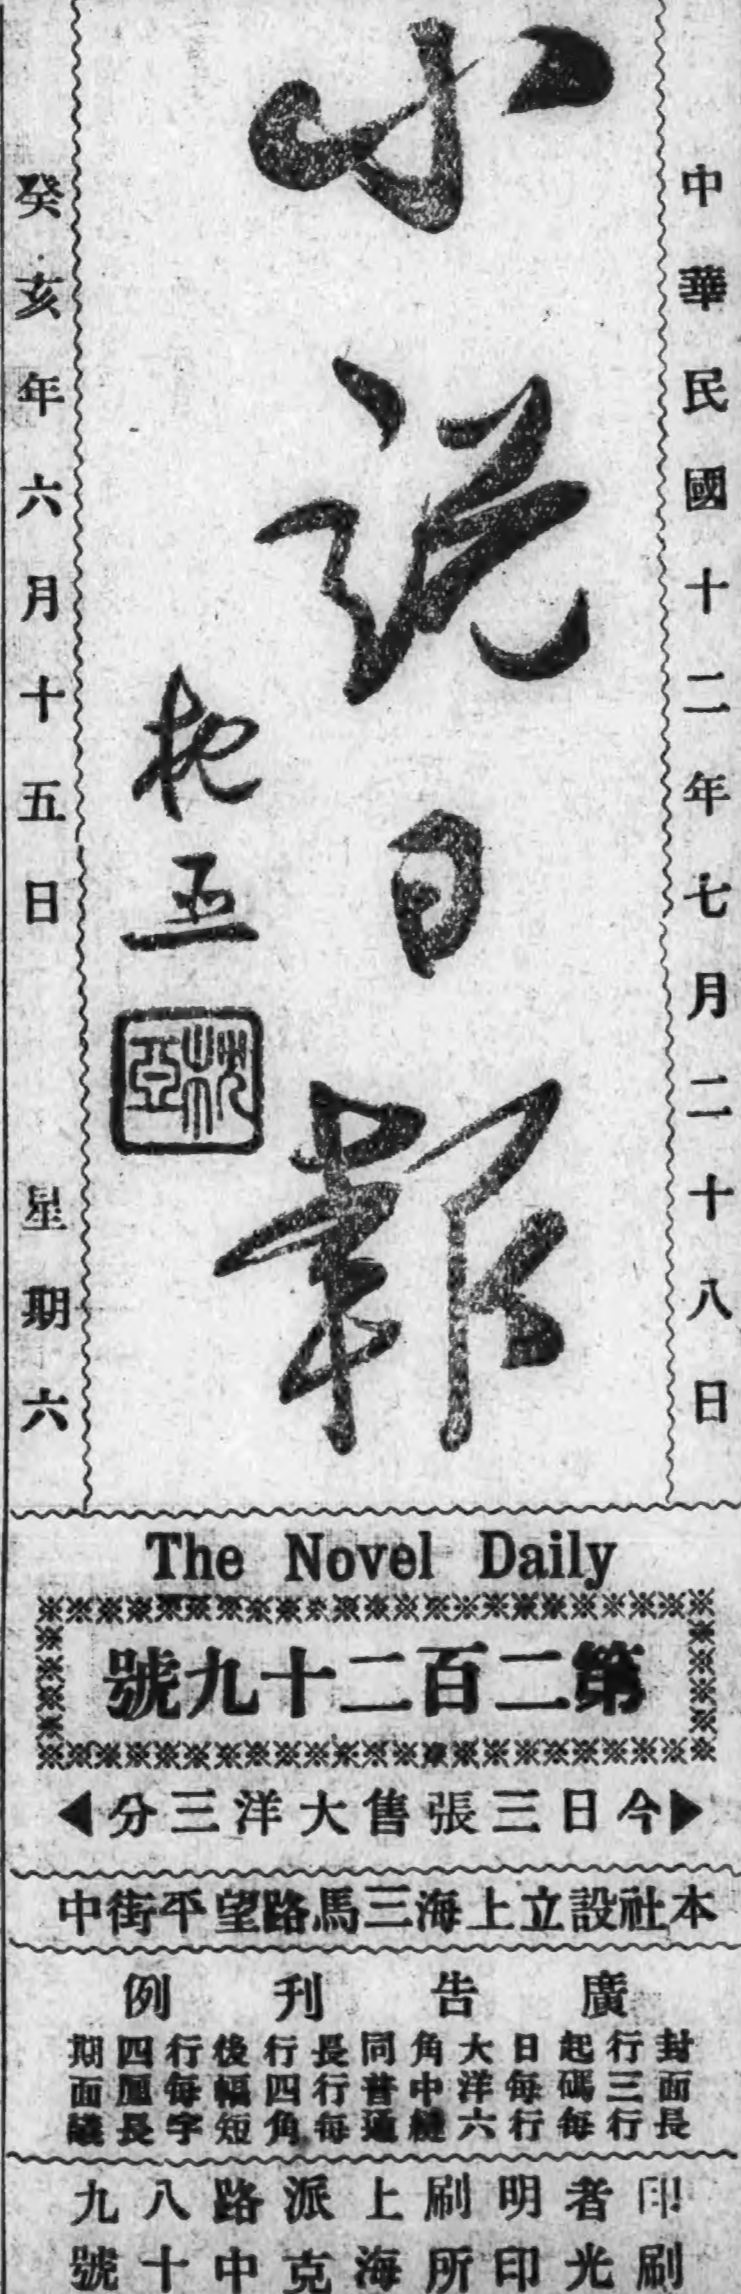 中華民國十二年七月二十八日
小說日報
枕亞
枕亞
癸亥年六月十五日 星期六
The Novel Daily
第二百二十九號
▶今日三張售大洋三分◀
本社設立上海三馬路望平街中
廣告刊例
封面長
行三行
起碼每
日每行
大洋六
角中縫
同普通
長行每
行四角
後幅短
行每字
四厘長
期面議
印刷
者光
明印
刷所
上海
派克
路中
八十
九號